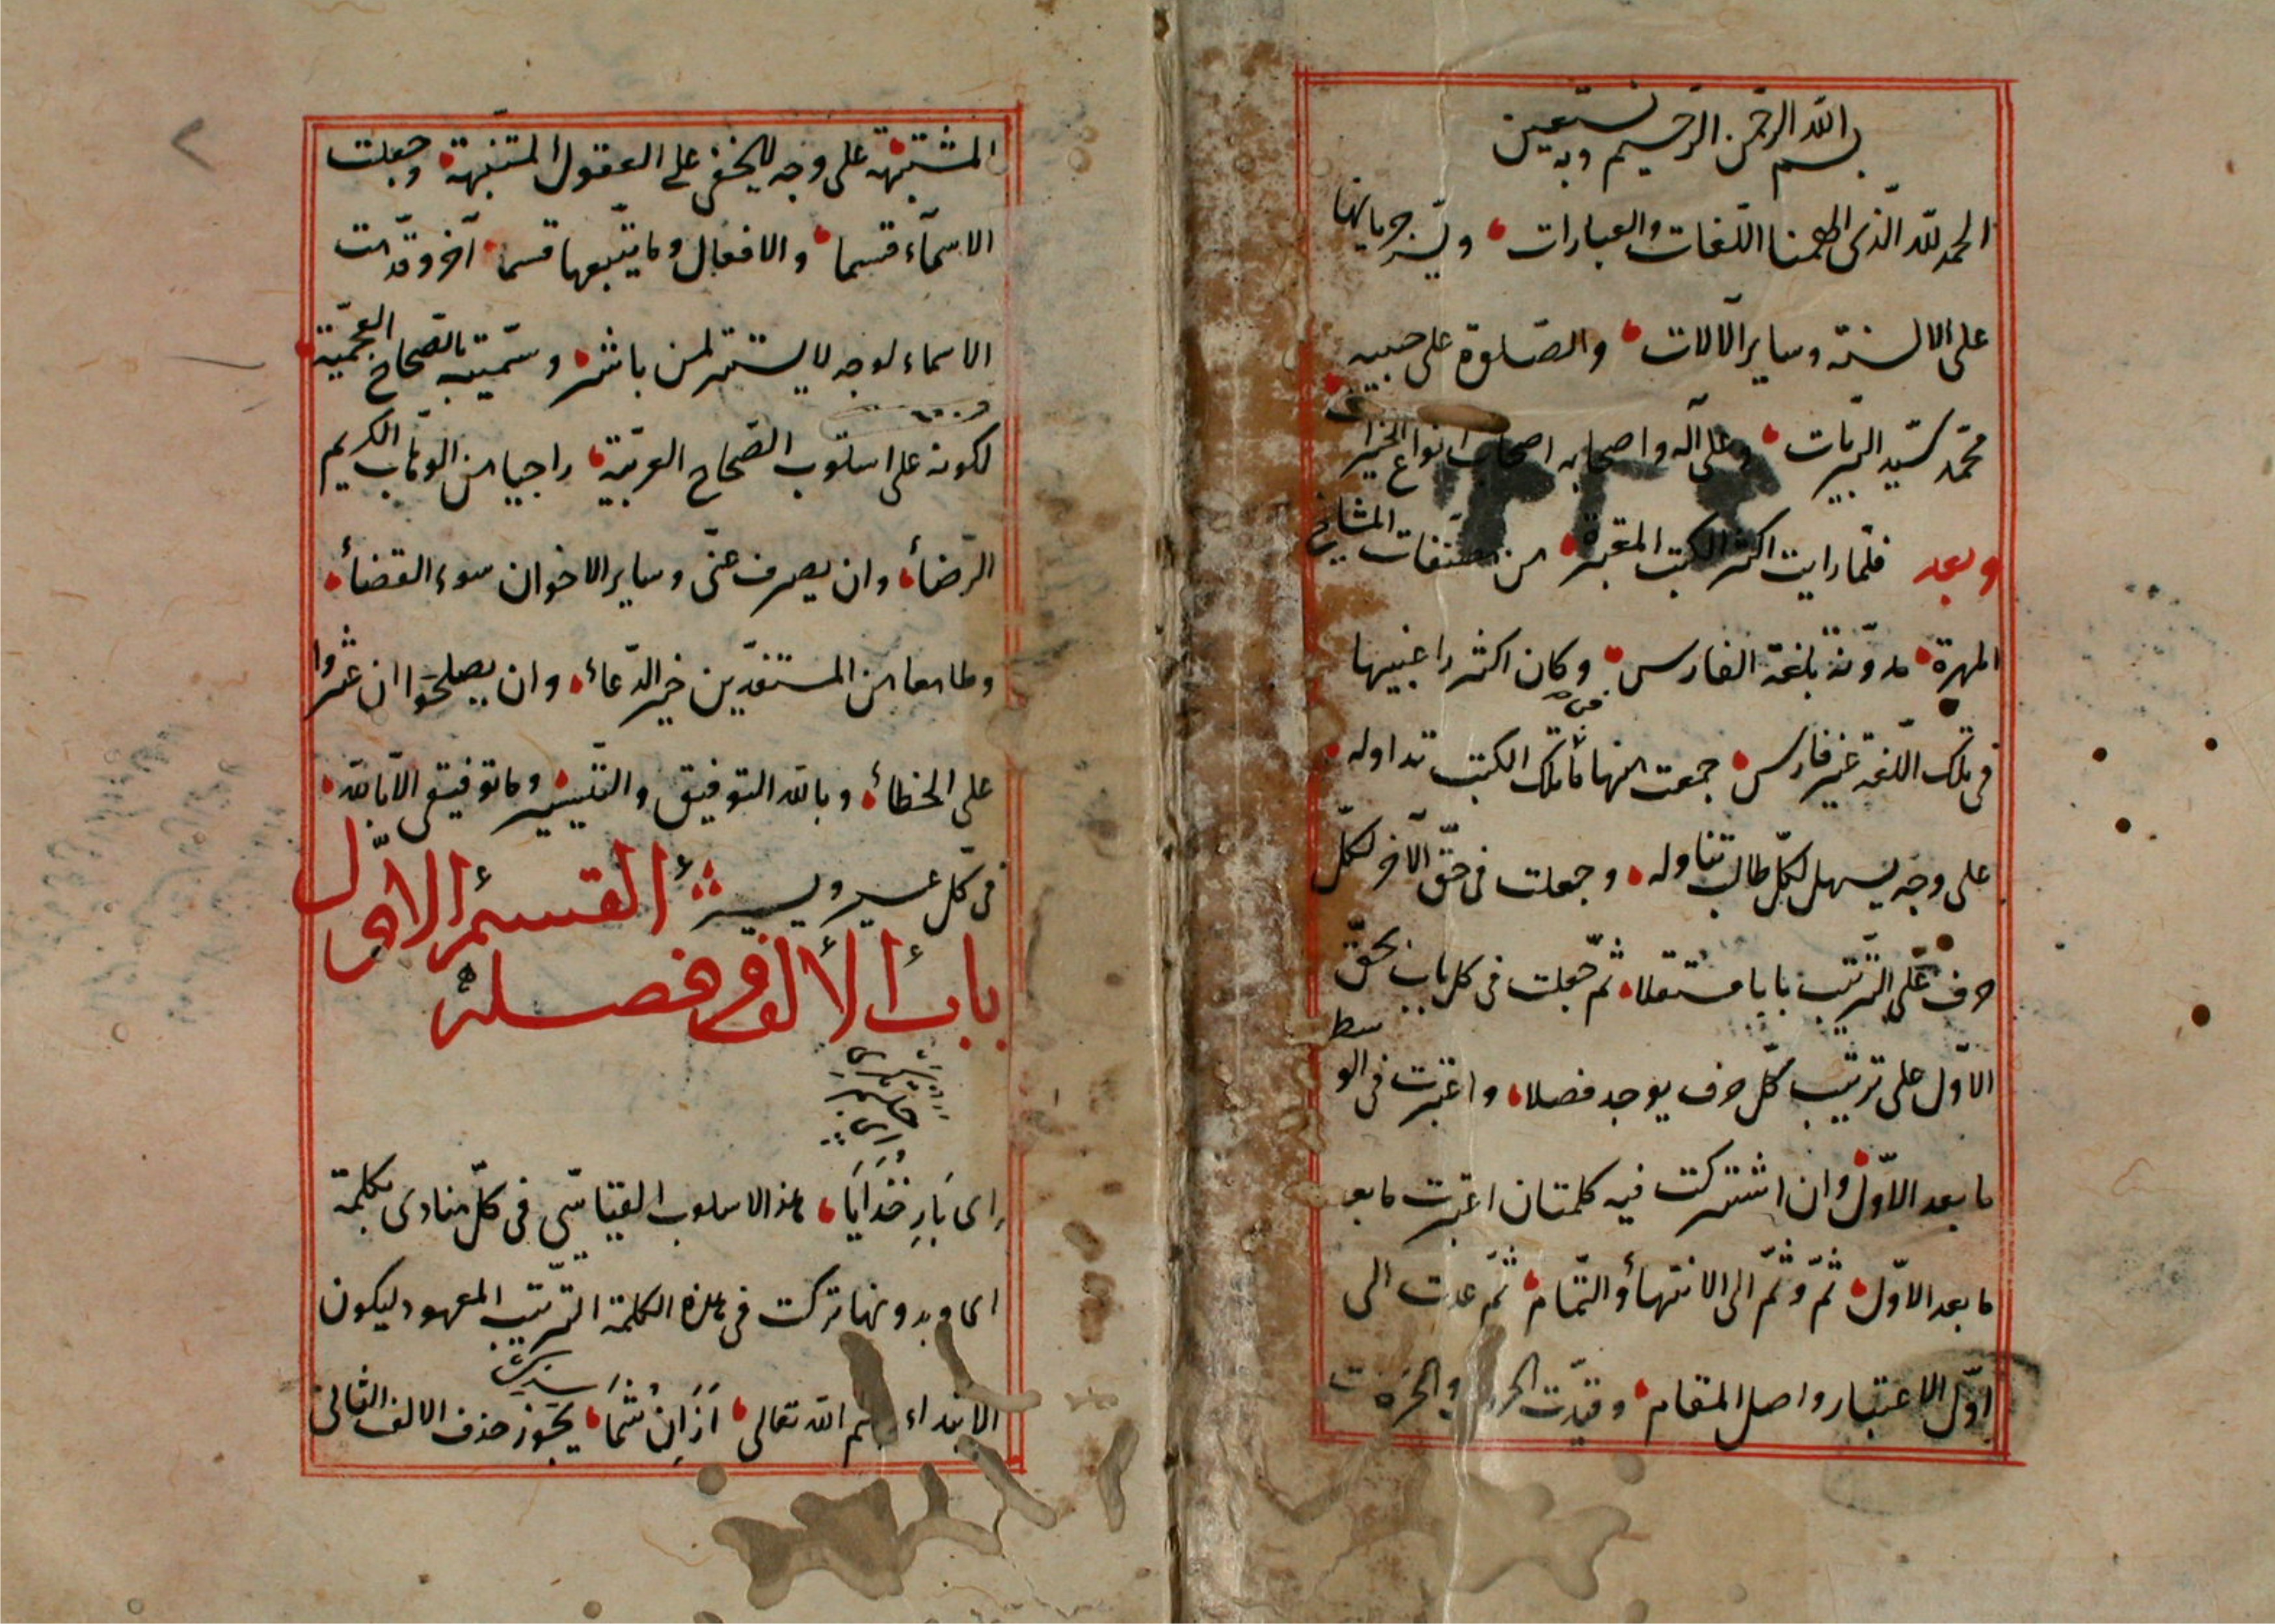 بسم الله الرحمن الرحيم وبه نستعين
الحمد لله الذى الهمنا اللغات والعبارات ويسر جريانها
على الالسنة وساير الآلات والصلوة على حبيبه
محمد سيد البريات وعلى آله واصحابه اصحاب انواع الخيرات
وبعد فلما رايت اكثر الكتب المعتبرة من مصنفات المشايخ
المهرة مدونة بلغة الفارس وكان اكثر راغبيها
فى تلك اللغة غير فارس جمعت منها ما فى تلك الكتب تداوله
على وجه يسهل لكل طالب تناوله وجعلت فى حق الآخر لكل
حرف على الترتيب بابا مستقلا ثم جعلت فى كل باب بحق
الاول على ترتيب كل حرف يوجد فصلا واعتبرت فى الوسط
ما بعد الاول وان اشتركت فيه كلمتان اعتبرت ما بعد
ما بعد الاول ثم وثم الى الانتهاء والتمام ثم عدت الى
اول الاعتبار واصل المقام وقيدت
المشتبهة على وجه لا يخفى على العقول المتنبهة وجعلت
الاسماء قسما والافعال وما يتبعها قسما آخر وقدمت
الاسماء لوجه لا يستتر لمن باشر وسميته بالصحاح العجمية
لكونه على اسلوب الصحاح العربية راجيا من الوهاب الكريم
الرضاء وان يصرف عنى وساير الاخوان سوء القضاء
وطامعا من المستفدين خير الدعاء وان يصلحوا ان عثروا
على الخطاء وبالله التوفيق والتيسير وما توفيقى الا بالله
فى كل عسير ويسير القسم الاول فى
باب الالف فصله
اى بَارِ خُدَايَا هذا الاسلوب القياسى فى كل منادى بكلمة
اى وبدونها تركت فى هذه الكلمة الترتيب المعهود ليكون
الابتداء باسم الله تعالى اَزَانِ شُمَا يجوز حذف الالف الثانى